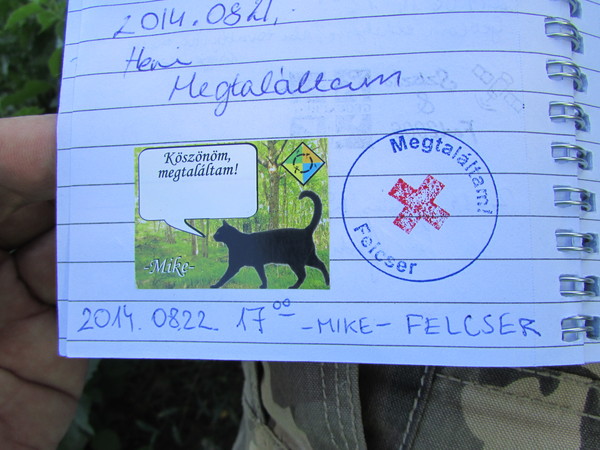 2014.08.21.
Heni
Megtaláltam
Köszönöm,
megtaláltam!
-Mike-
Megtaláltam!
Felcser
2014.08.22. 17⁰⁰ -MIKE- FELCSER